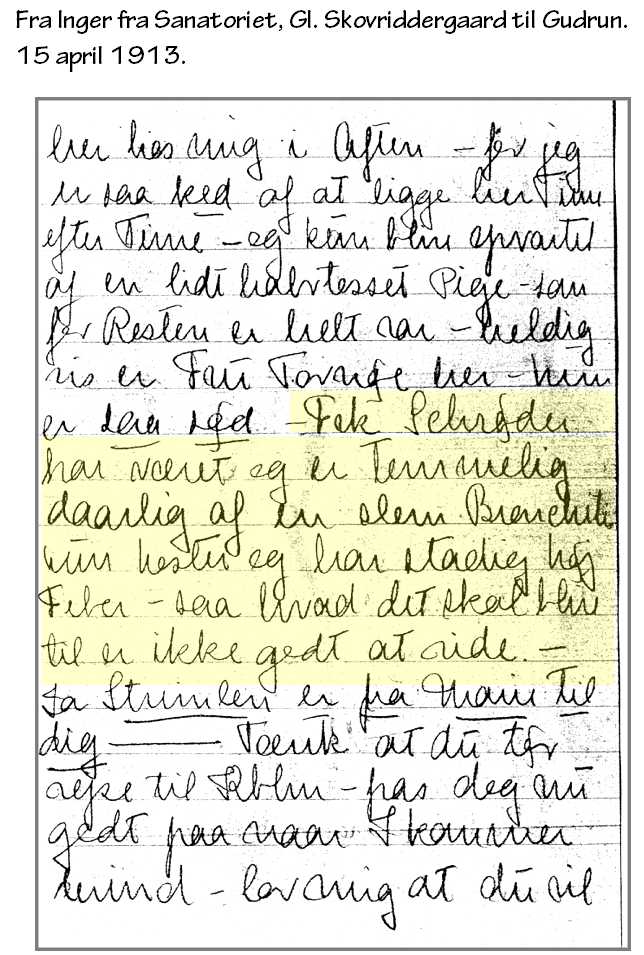 Fra Inger fra Sanatoriet, Gl. Skovriddergaard til Gudrun.
15 april 1913.
her hos mig i Aften – for jeg
er saa ked af at ligge her Time
efter Time – og kun blive opvartet
af en lidt halvtosset Pige – som
for Resten er helt rar – heldig
vis er Frü Tovnge her – hun
er saa sød – Frk Schrøder
har været og er temmelig
daarlig af en slem Bronchitis
hun hoster og har stadig høj
Feber – saa hvad det skal blive
til er ikke godt at vide. –
Ja Strimlen er fra Marie til
dig —— Tænk at du tør
rejse til Kbhn – pas dog nu
godt paa naar I kommer
herind – lov mig at du vil